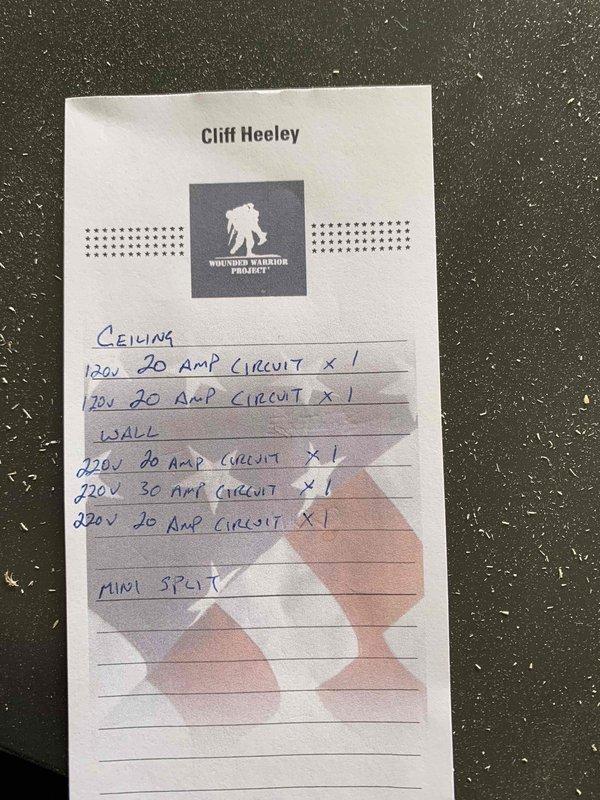 Cliff Heeley
WOUNDED WARRIOR
PROJECT
CEILING
120V 20 AMP CIRCUIT X 1
120V 20 AMP CIRCUIT X 1
WALL
220V 20 AMP CIRCUIT X 1
220V 30 AMP CIRCUIT X 1
220V 20 AMP CIRCUIT X 1
MINI SPLIT